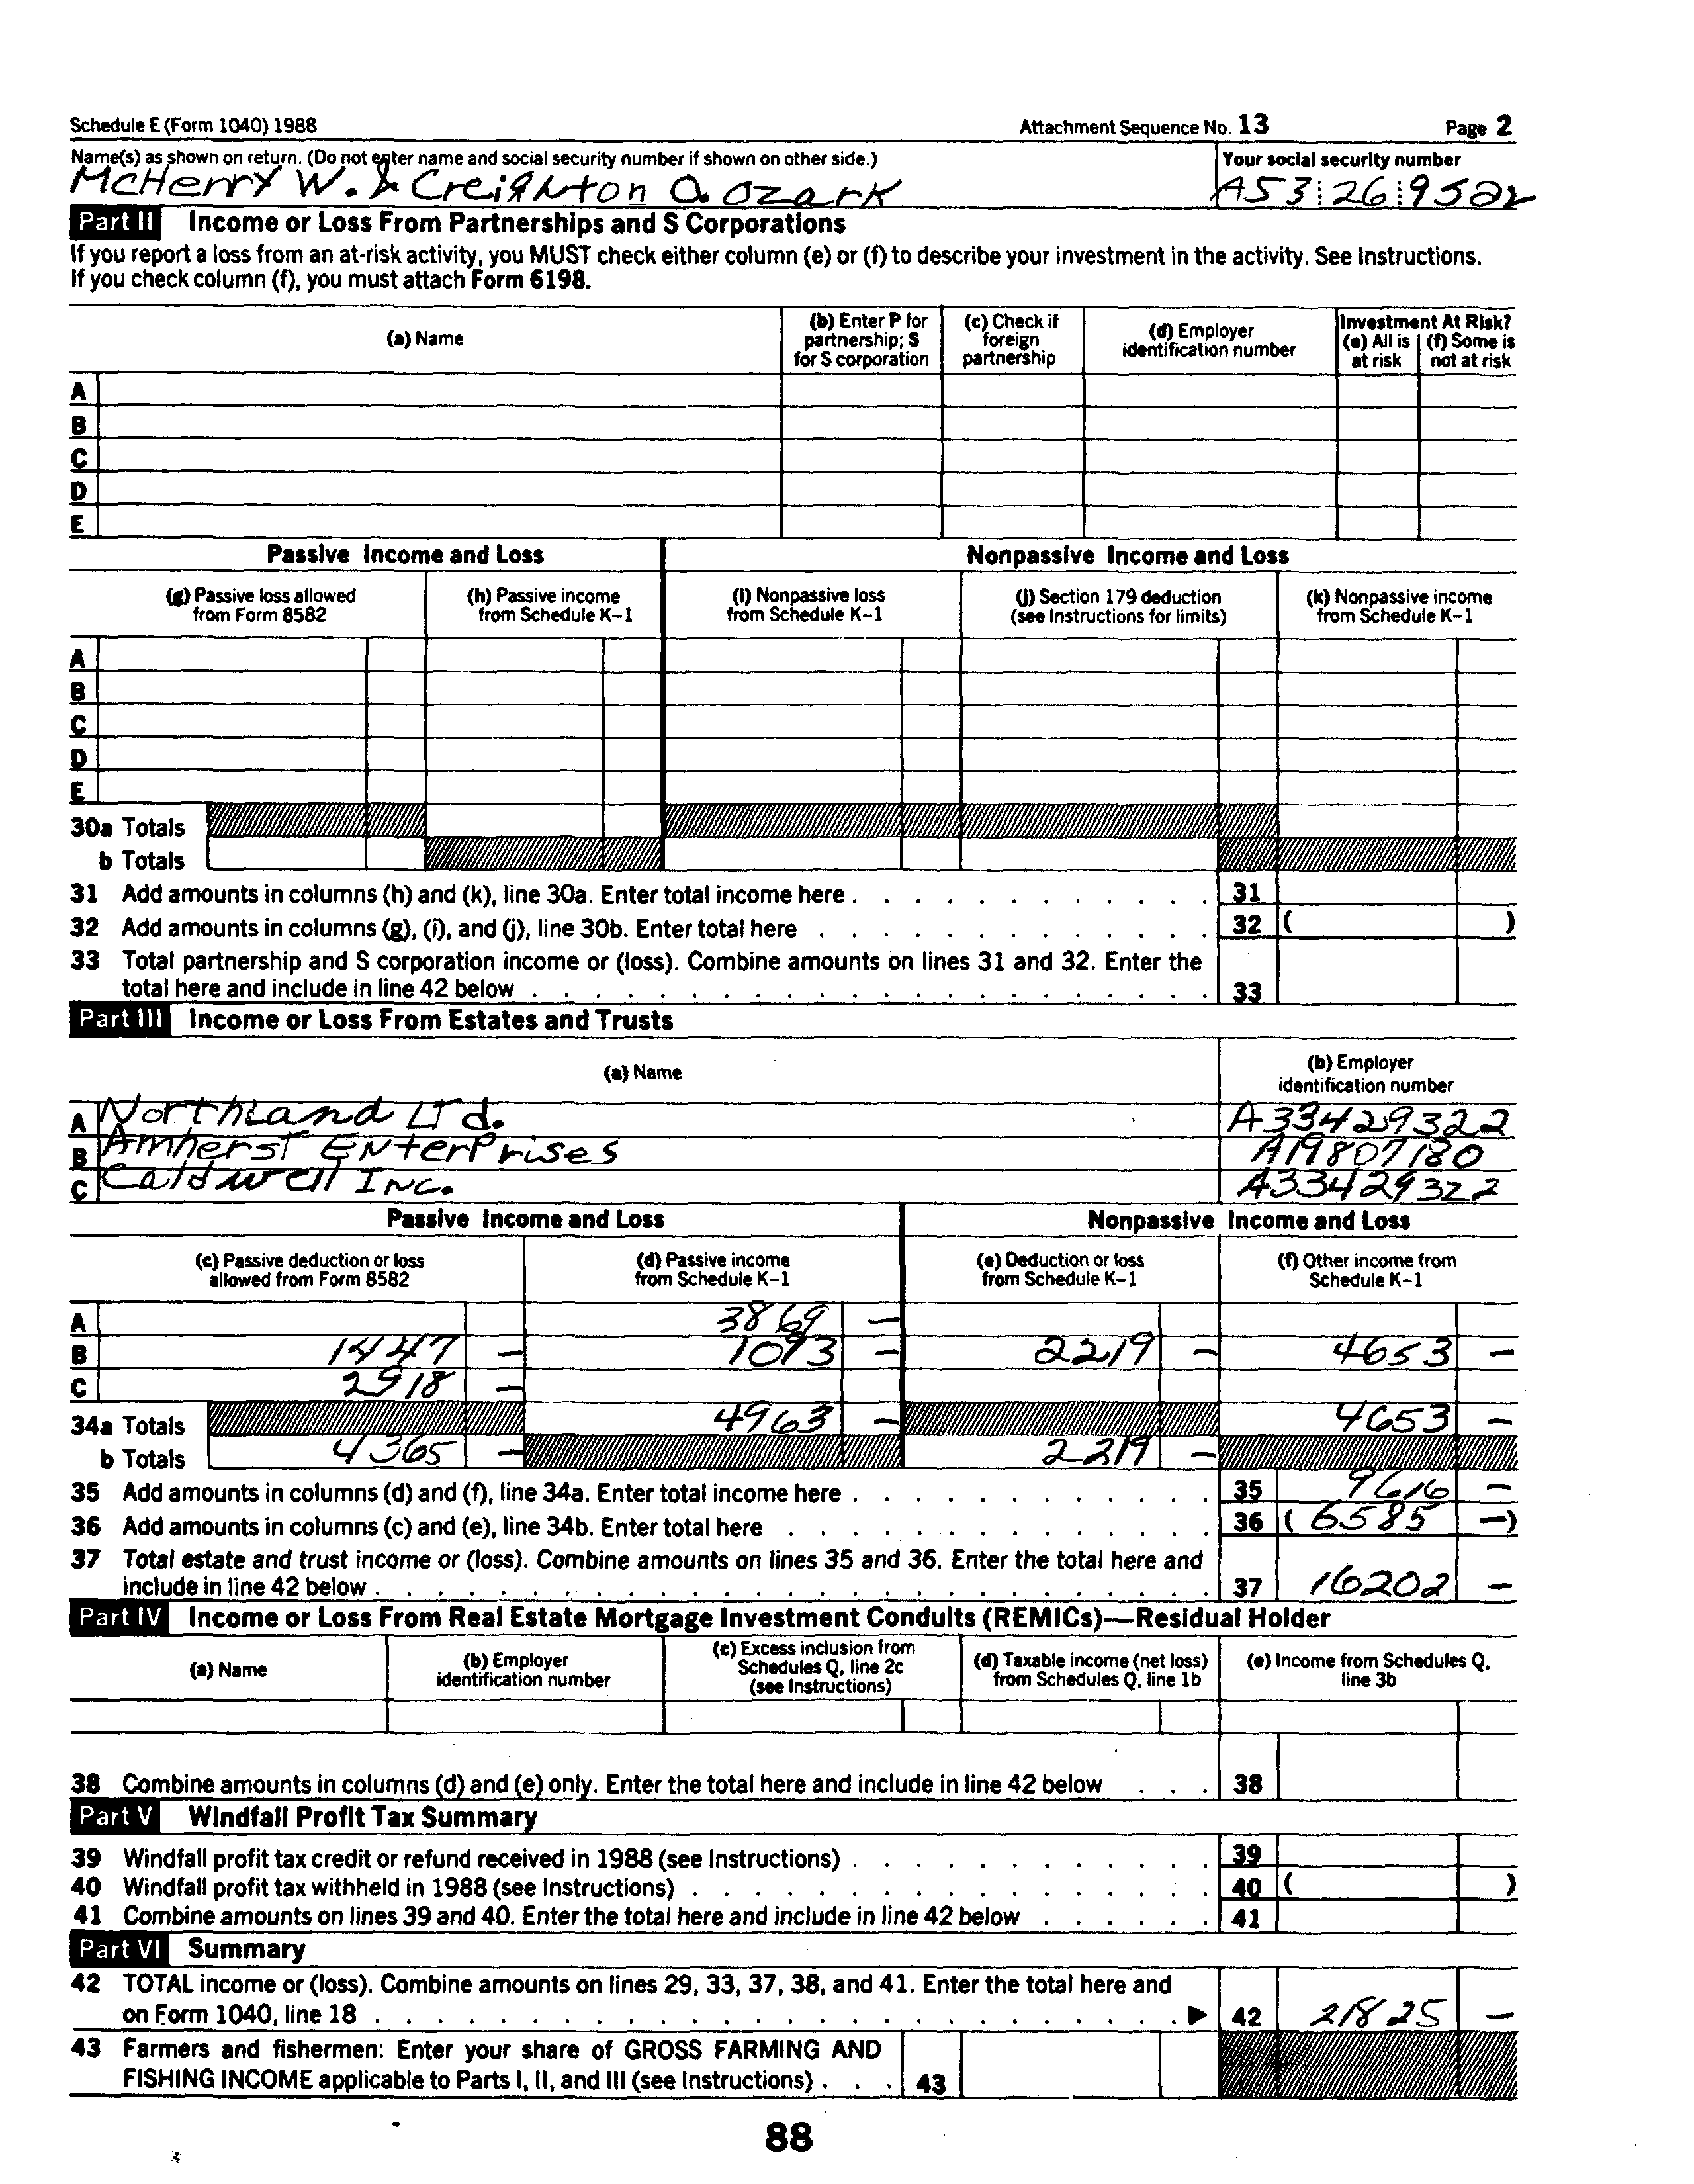 Schedule E (Form 1040) 1988 Attachment Sequence No. 13 Page 2
Name(s) as shown on return. (Do not enter name and social security number if shown on other side.) Your social security number
McHenry W. & Creighton O. Ozark A53 26 9522
Part II Income or Loss From Partnerships and S Corporations
If you report a loss from an at-risk activity, you MUST check either column (e) or (f) to describe your investment in the activity. See Instructions.
If you check column (f), you must attach Form 6198.
(a) Name (b) Enter P for partnership; S for S corporation (c) Check if foreign partnership (d) Employer identification number Investment At Risk? (e) All is at risk (f) Some is not at risk
A
B
C
D
E
Passive Income and Loss Nonpassive Income and Loss
(g) Passive loss allowed from Form 8582 (h) Passive income from Schedule K–1 (i) Nonpassive loss from Schedule K–1 (j) Section 179 deduction (see Instructions for limits) (k) Nonpassive income from Schedule K–1
A
B
C
D
E
30a Totals
b Totals
31 Add amounts in columns (h) and (k), line 30a. Enter total income here . . . 31
32 Add amounts in columns (g), (i), and (j), line 30b. Enter total here . . . 32 ( )
33 Total partnership and S corporation income or (loss). Combine amounts on lines 31 and 32. Enter the
total here and include in line 42 below . . . 33
Part III Income or Loss From Estates and Trusts
(a) Name (b) Employer identification number
A Northland Ltd. A33429322
B Amherst Enterprises A19807180
C Caldwell Inc. A33429322
Passive Income and Loss Nonpassive Income and Loss
(c) Passive deduction or loss allowed from Form 8582 (d) Passive income from Schedule K–1 (e) Deduction or loss from Schedule K–1 (f) Other income from Schedule K–1
A 3869 –
B 1447 – 1093 – 2219 – 4653 –
C 2918 –
34a Totals 4963 – 4653 –
b Totals 4365 – 2219 –
35 Add amounts in columns (d) and (f), line 34a. Enter total income here . . . 35 9616 –
36 Add amounts in columns (c) and (e), line 34b. Enter total here . . . 36 ( 6585 –)
37 Total estate and trust income or (loss). Combine amounts on lines 35 and 36. Enter the total here and
include in line 42 below . . . 37 16202 –
Part IV Income or Loss From Real Estate Mortgage Investment Conduits (REMICs)—Residual Holder
(a) Name (b) Employer identification number (c) Excess inclusion from Schedules Q, line 2c (see Instructions) (d) Taxable income (net loss) from Schedules Q, line 1b (e) Income from Schedules Q, line 3b
38 Combine amounts in columns (d) and (e) only. Enter the total here and include in line 42 below . . . 38
Part V Windfall Profit Tax Summary
39 Windfall profit tax credit or refund received in 1988 (see Instructions) . . . 39
40 Windfall profit tax withheld in 1988 (see Instructions) . . . 40 ( )
41 Combine amounts on lines 39 and 40. Enter the total here and include in line 42 below . . . 41
Part VI Summary
42 TOTAL income or (loss). Combine amounts on lines 29, 33, 37, 38, and 41. Enter the total here and
on Form 1040, line 18 . . . ▶ 42 21825 –
43 Farmers and fishermen: Enter your share of GROSS FARMING AND
FISHING INCOME applicable to Parts I, II, and III (see Instructions) . . . 43
88